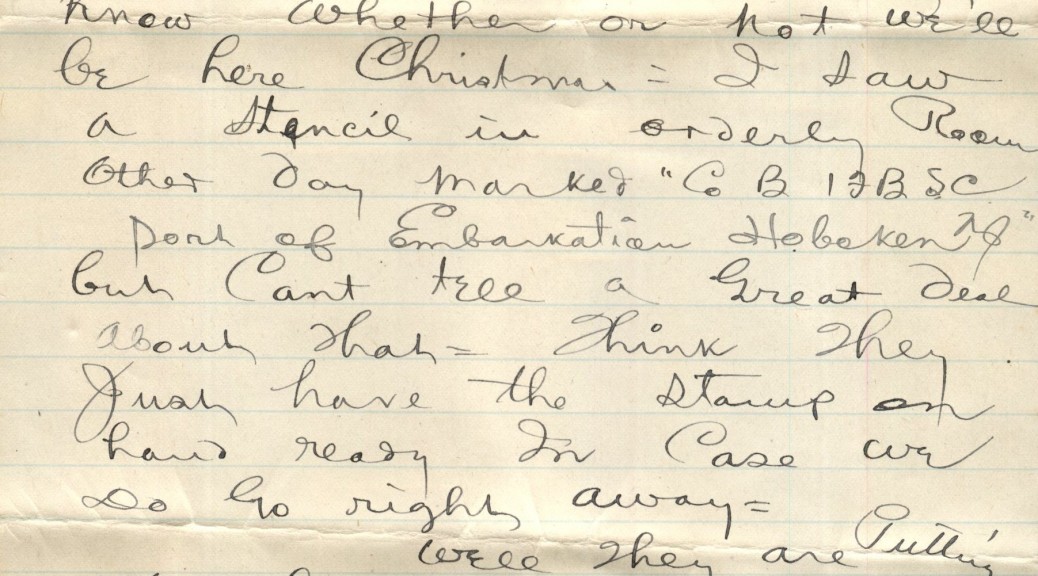 Know whether or not we'll
be here Christmas = I saw
a Stencil in orderly Room
Other Day marked "Co B 1 I B S C
Port of Embarkation Hoboken NJ"
but Cant tell a Great Deal
About that = Think They
Just have the stamp on
hand ready In Case we
Do Go right away =
well They are Puttin'